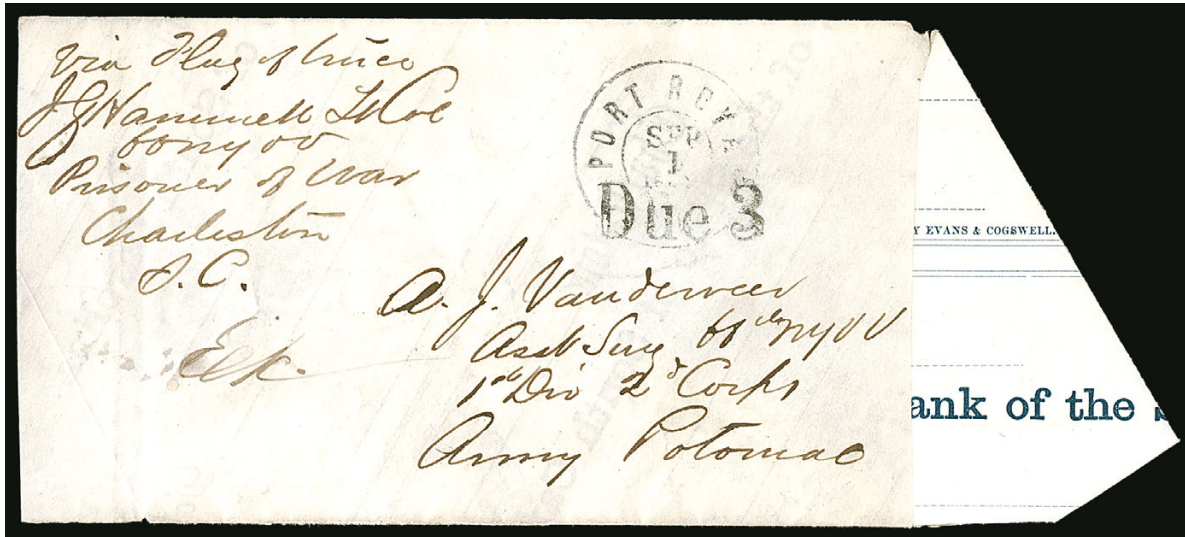 Via Flag of truce
J G Hammell Lt Col
66 NYVV
Prisoner of War
Charleston
S.C.
PORT ROYAL
SEP
1
Due 3
A. J. Vanderveer
Asst Surg 66th NYVV
1st Div 2d Corps
Army Potomac
Y EVANS & COGSWELL.
ank of the S